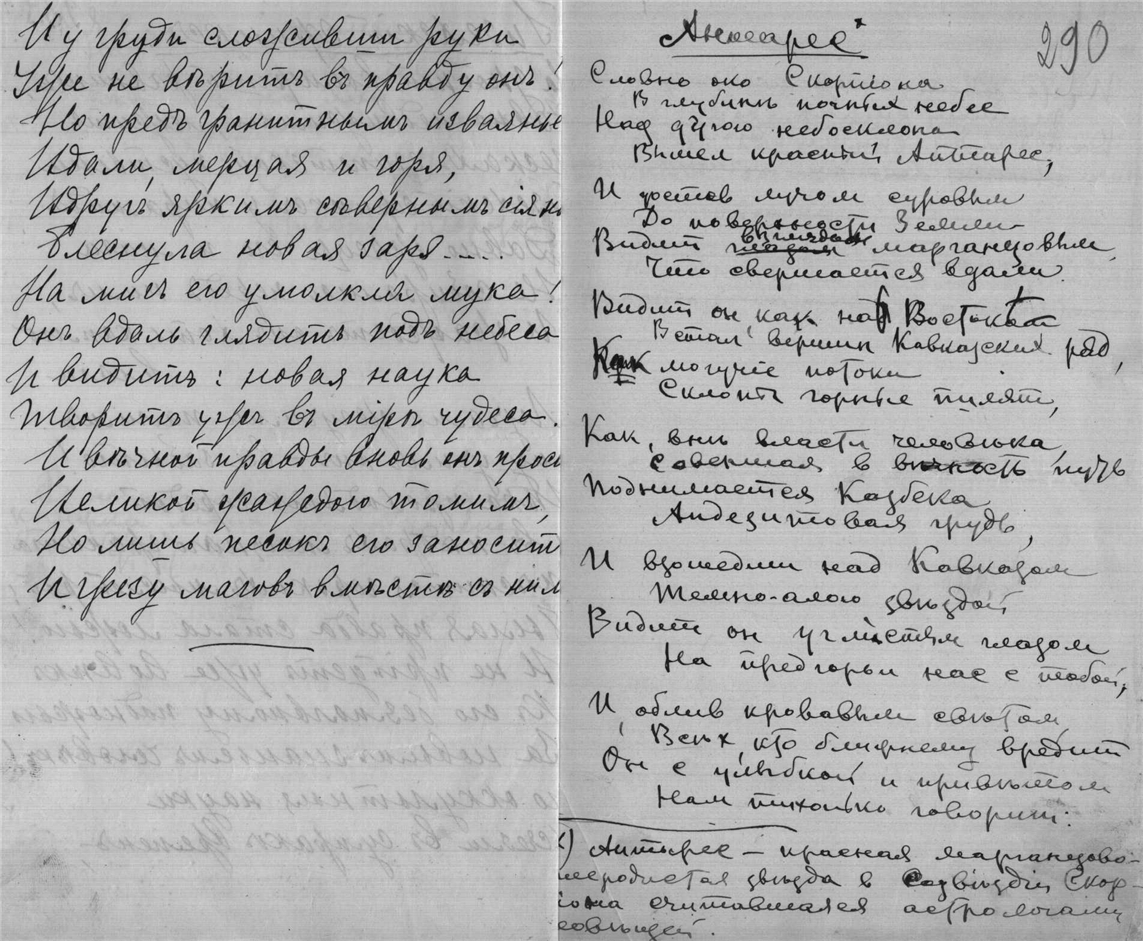 И у груди сложивши руки
Уже не вѣритъ въ правду онъ!
Но предъ гранитнымъ изваянье
Вдали, мерцая и горя,
Вдругъ яркимъ сѣвернымъ сія
Блеснула новая заря.....
На мигъ его умолкла мука!
Онъ вдаль глядитъ подъ небеса
И видитъ: новая наука
Творитъ ужъ въ мірѣ чудеса.
И вѣчной правды вновь онъ проси
Великой жаждою томимъ,
Но лишь песокъ его заноситъ
И грезу маговъ вмѣстѣ съ ним
290
Антарес*
Словно око Скорпіона
В глубинѣ ночных небес
Над дугою небосклона
Вышел красный Антарес,
И достав лучом суровым
До поверхности Земли
Видит взглядом марганцовым,
Что свершается вдали.
Видит он, как на Восток
Встал вершин Кавказских ряд,
Как могучіе потоки
Склоны горные пилят,
Как, внѣ власти человѣка,
Совершая в вѣчность путь
Поднимается Казбека
Андезитовая грудь,
И взошедши над Кавказом
Темно-алою звѣздой
Видит он углистым глазом
На предгорьи нас с тобой,
И, облив кровавым свѣтом,
Всѣх, кто ближнему вредит
Он с улыбкой и привѣтом
Нам тихонько говорит:
*) Антарес – красная марганцово-
леродистая звѣзда в созвѣздіи Скор-
іона считавшаяся астрологами
ловѣщей.